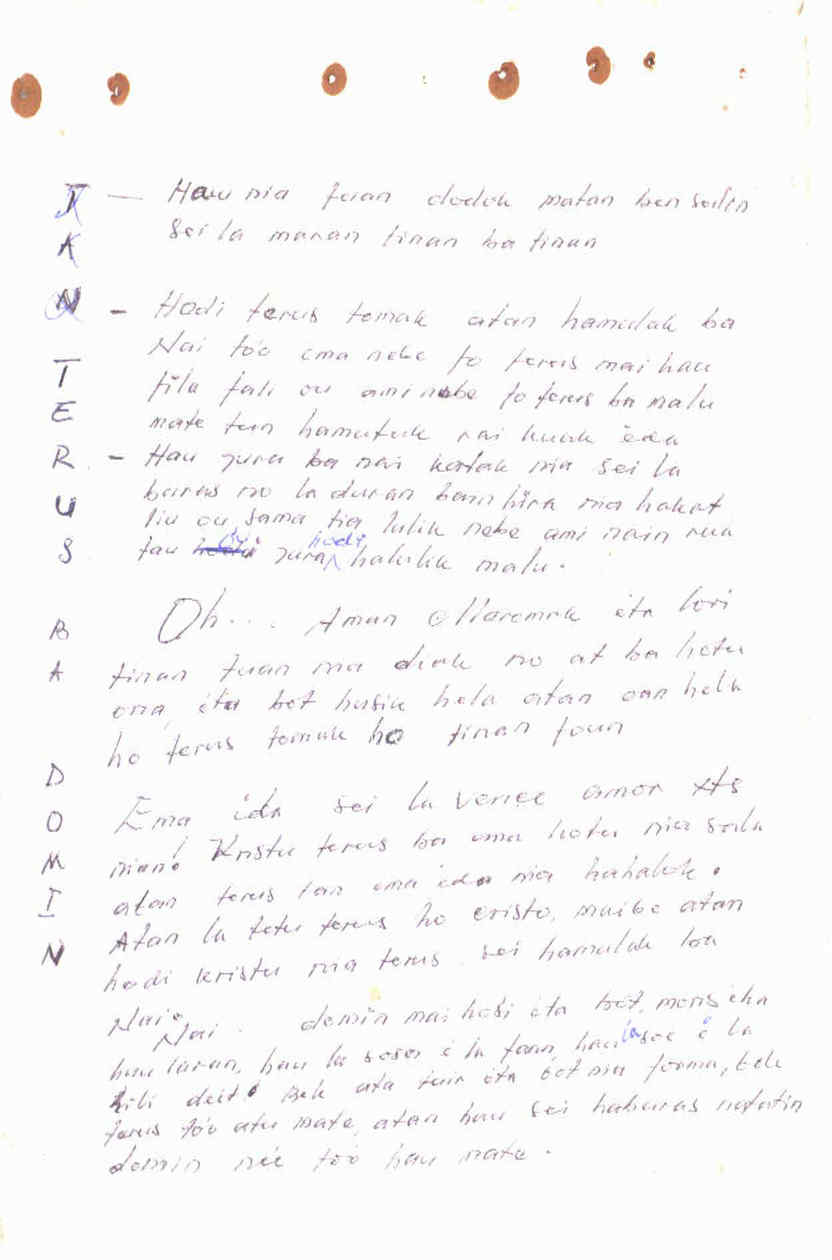 I K A N T E R U S B A D O M I N
— Hau nia fuan dodok matan ben sulin
Sei la maran tinan ba tinan
- Hodi terus tomak atan hamulak ba
Nai to'o ema nebe fo terus mai hau
fila fali ou ami nebe fo terus ba malu
mate tun hamutuk rai kuak ida
- Hau jura ba nai katak nia sei la
barus no la duran bain hira nia hakat
liu ou sama tia lulik nebe ami nain rua
tau jura hodi halulik malu.
Oh... Aman Maromak ita lori
tinan tuan nia diak no at ba hotu
ona, ita bot husik hela atan oan hela
ho terus tomak ho tinan foun
Ema ida sei la vence amor
nian! Kristu terus ba ema hotu nia sala
atan terus tan ema ida nia hahalok.
Atan la tetu terus ho cristo, maibe atan
hodi kristu nia terus sei hamulak ba
Nai.
Nai. domin mai hosi ita bot, moris iha
hau laran, hau la sosa i la faan, hau la see i la
hili deit. Bele ata tuir ita bot nia forma, bele
terus to'o atu mate, atan hau sei haburas nafatin
domin ne'e to'o hau mate.